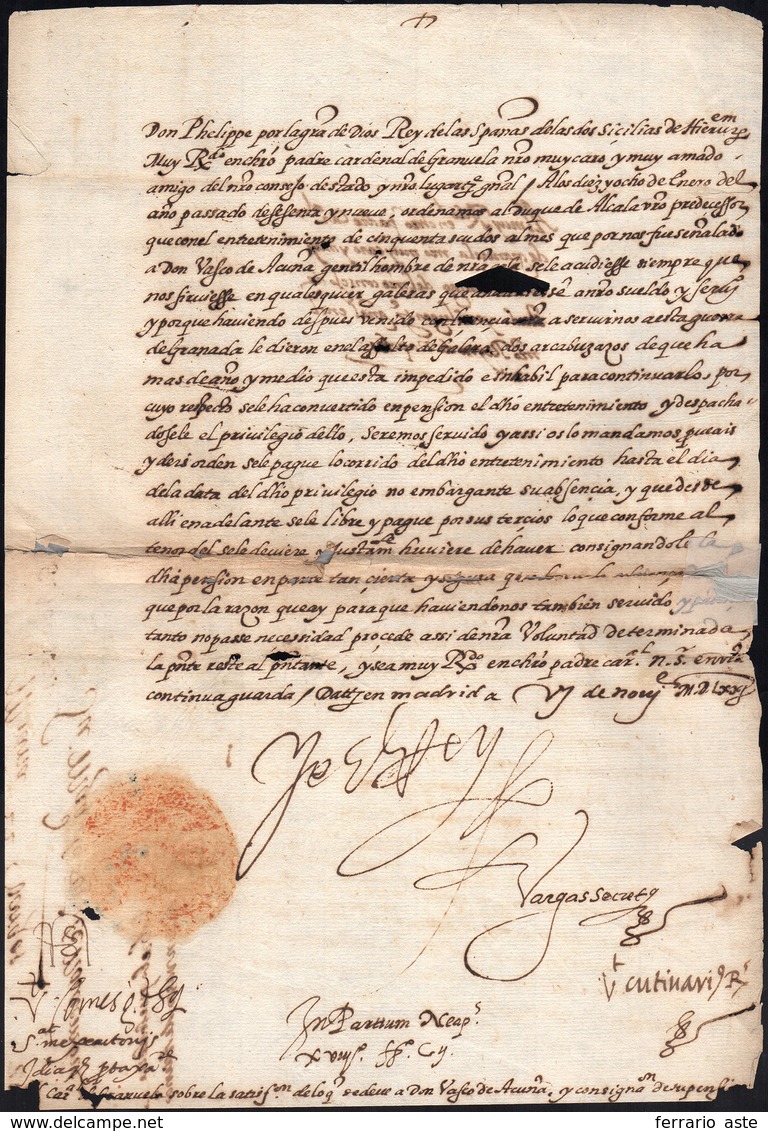 Don Phelippe por la gra de Dios Rey de las Spanas de las dos Sicilias de Hierum
Muy Rdo en chro padre cardenal de Granuela nro muy caro, y muy amado
amigo del nro consejo destado y nro lugart gnal / A los diez y ocho de Enero del
año passado de sesenta y nueve, ordenamos al Duque de Alcala vro predecessor
que con el entretenimiento de cinquenta scudos al mes que por nos fue señalado
a Don Vasco de Acuña gentilhombre de nra se le acudiesse siempre que
nos siruiesse en qualesquier galeras que a nro sueldo y serui
y porque haviendo despues venido a seruirnos a esta guerra
de Granada le dieron en el assalto de Galera dos arcabuzazos de que ha
mas de año y medio que esta impedido e inhabil para continuarlo, por
cuyo respecto se le ha convertido en pension el dho entretenimiento y despacha
dosele el privilegio dello, Seremos servido y assi os lo mandamos
y deis orden se le pague lo corrido del dho entretenimiento hasta el dia
de la data del dho privilegio no embargante su absencia, y que desde
alli en adelante se le libre y pague por sus tercios lo que conforme al
tenor del se le deuiere y justam huviere de haver consignandole la
dha pension en parte tan cierta y segura que
que por la razon que ay para que haviendonos tambien servido
tanto no passe necessidad procede assi de nra Voluntad determinada
la pnte reste al pntante, y sea muy Rdo en chro padre car.l n. s. en vra
continua guarda / Datt en madrid a Vj de nou MDLxxj
Yo el Rey
Vargas secret
Vt cutinari R
In Partium Neap.
Car Granuela sobre la satisf.on de lo q se deve a Don Vasco de Acuña, y consigna.on de su pensi
ferrario aste